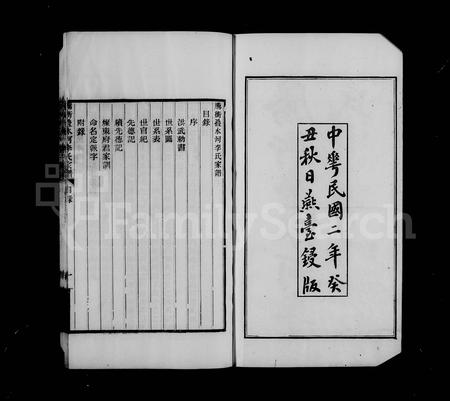 中華民國二年癸
丑秋日燕臺鋟版
騰衝疊水河李氏家譜
目錄
序
洪武勅書
世系圖
世系表
世官紀
先德記
續先德記
練東府君家訓
命名定派字
附錄
FamilySearch